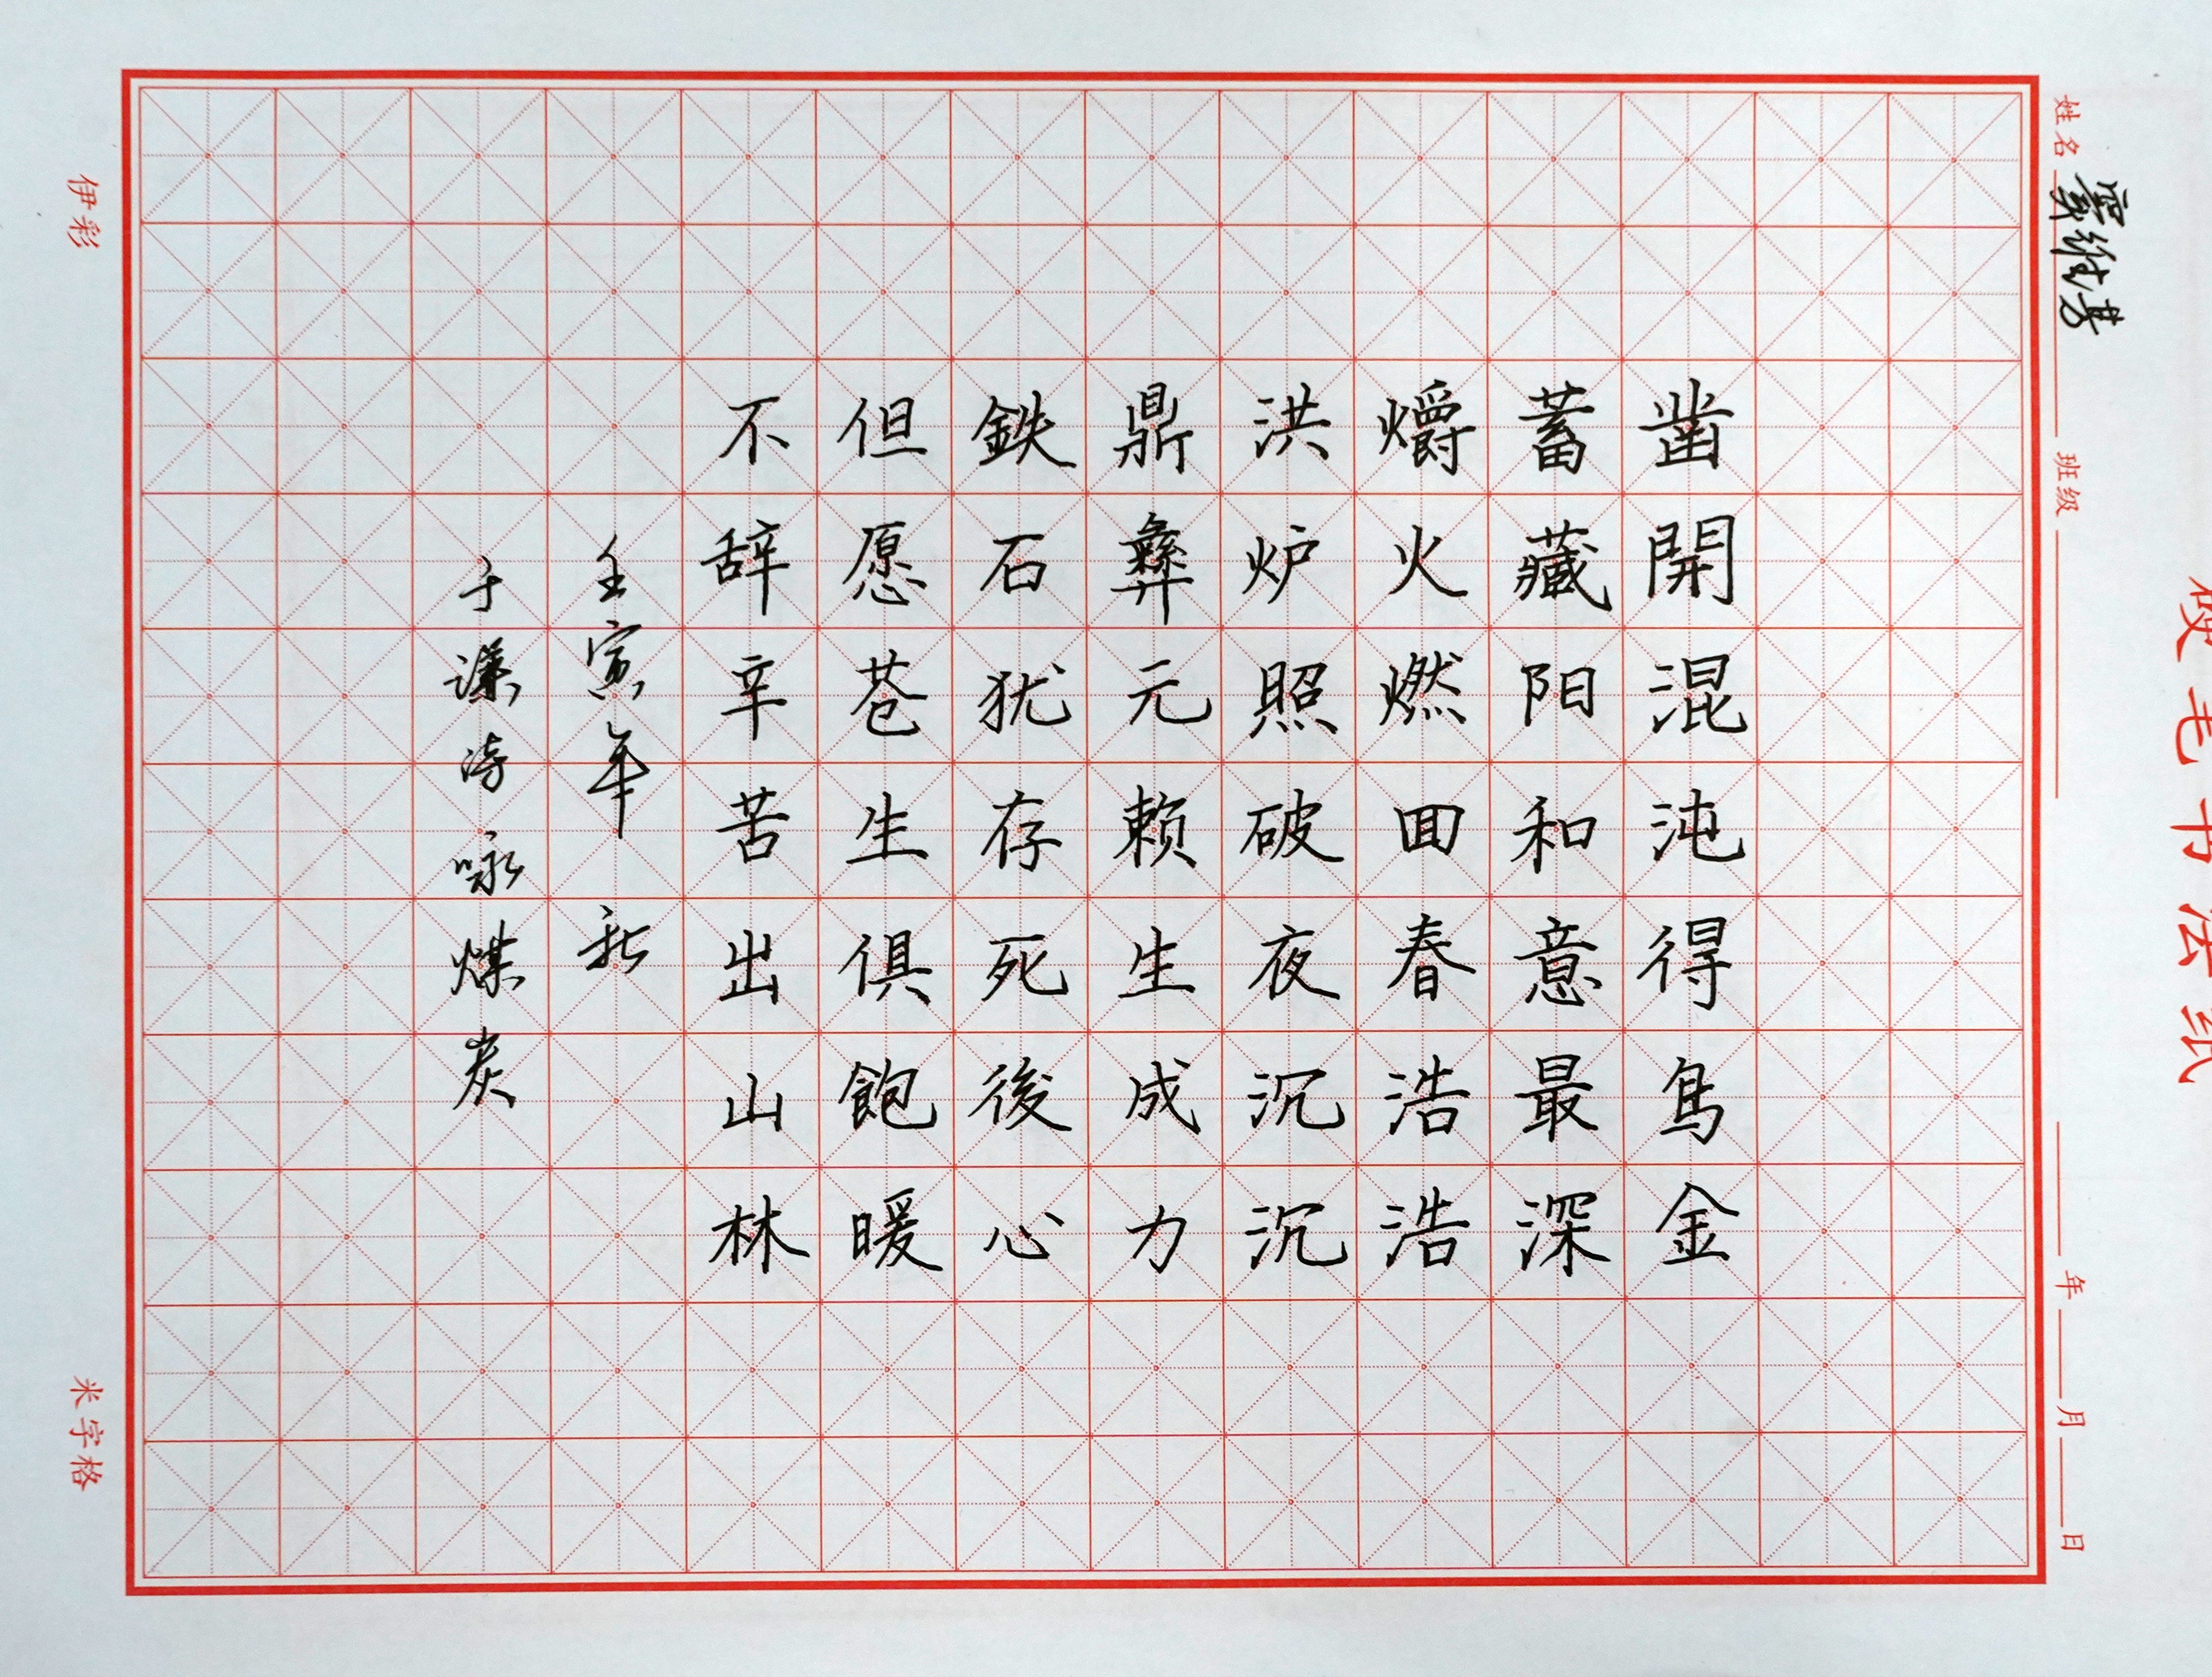 硬笔书法纸
姓名 班级 年 月 日
凿開混沌得烏金
蓄藏阳和意最深
爝火燃回春浩浩
洪炉照破夜沉沉
鼎彝元赖生成力
鉄石犹存死後心
但愿苍生俱飽暖
不辞辛苦出山林
壬寅年
于谦诗咏煤炭
伊彩 米字格